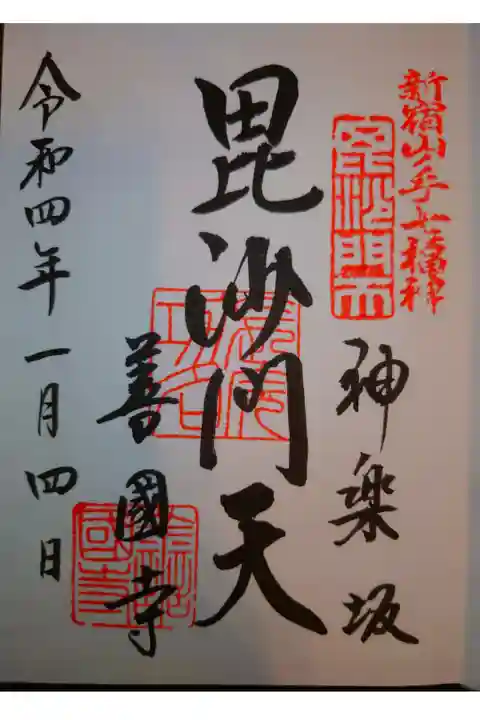 新宿山ノ手七福神
毘沙門天
神楽坂
毘沙門天
善國寺
令和四年一月四日